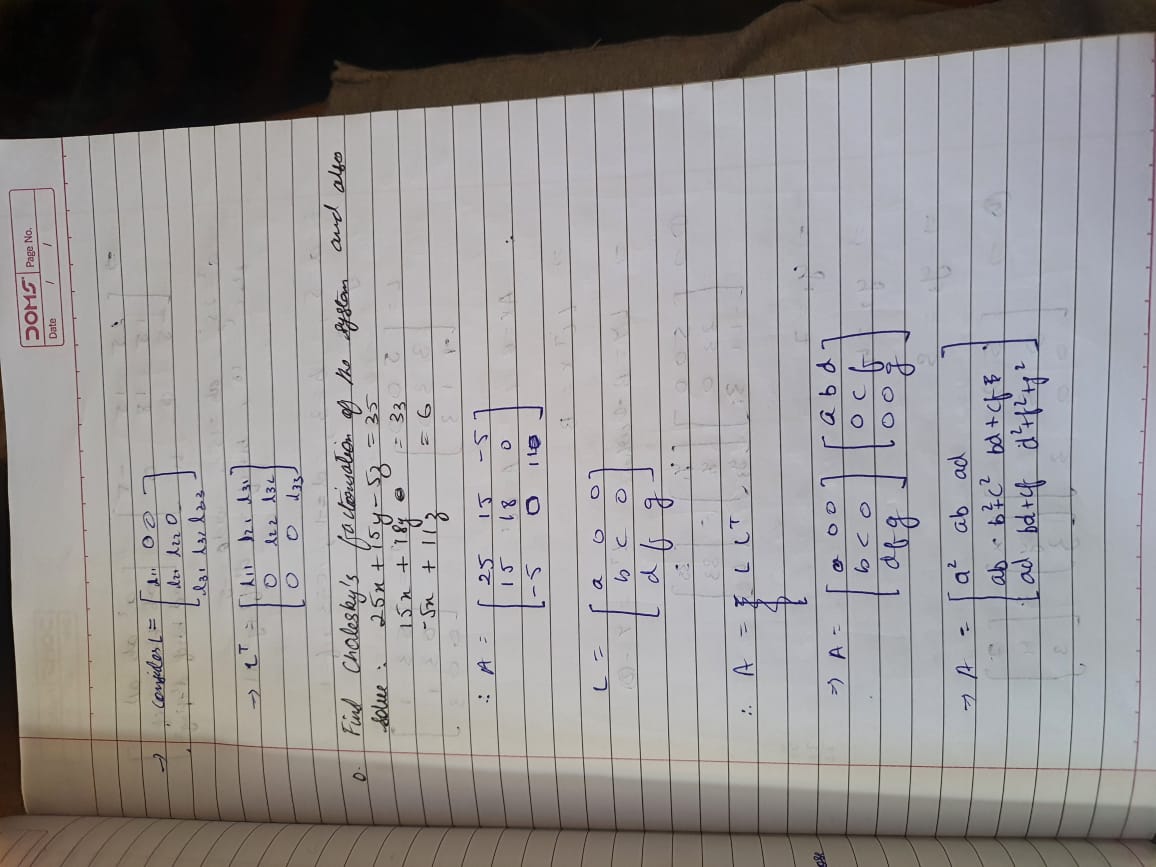 DOMS Page No.
Date / /
→ consider L = [ l11 0 0
l21 l22 0
l31 l32 l33 ]
→ LT = [ l11 l21 l31
0 l22 l32
0 0 l33 ]
Q. Find Cholesky's factorisation of the system and also
solve : 25x + 15y - 5z = 35
15x + 18y = 33
-5x + 11z = 6
∴ A = [ 25 15 -5
15 18 0
-5 0 11 ]
L = [ a 0 0
b c 0
d f g ]
∴ A = L LT
⇒ A = [ a 0 0 ] [ a b d ]
[ b c 0 ] [ 0 c f ]
[ d f g ] [ 0 0 g ]
⇒ A = [ a² ab ad
ab b²+c² bd+cf
ad bd+cf d²+f²+g² ]